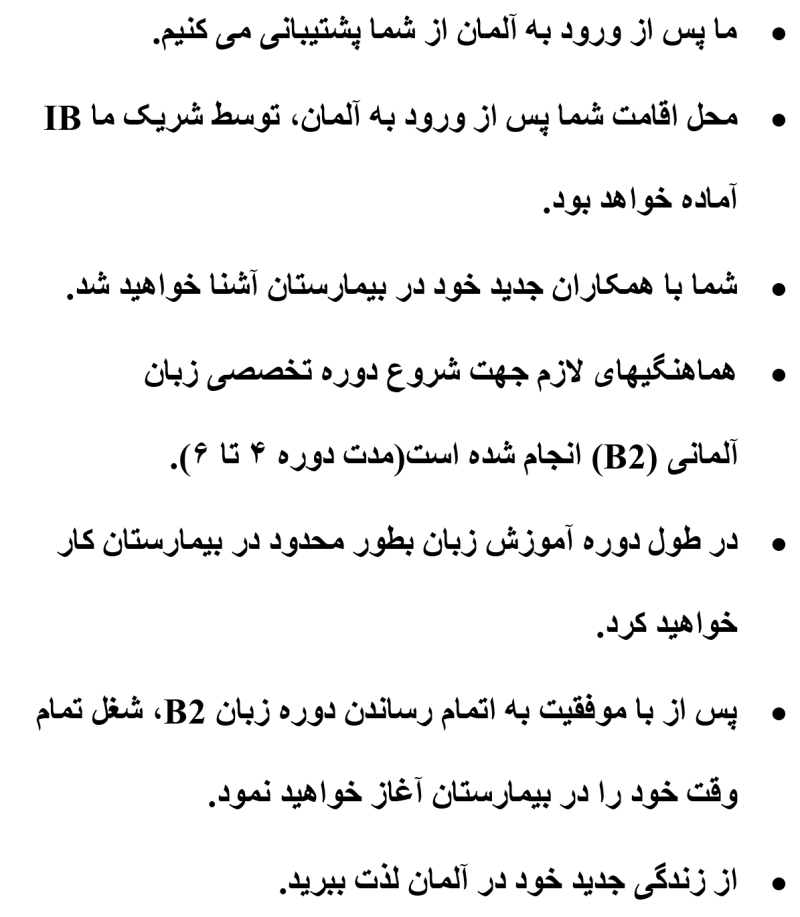 • ما پس از ورود به آلمان از شما پشتیبانی می کنیم.
• محل اقامت شما پس از ورود به آلمان، توسط شریک ما IB
آماده خواهد بود.
• شما با همکاران جدید خود در بیمارستان آشنا خواهید شد.
• هماهنگیهای لازم جهت شروع دوره تخصصی زبان
آلمانی (B2) انجام شده است(مدت دوره ۴ تا ۶).
• در طول دوره آموزش زبان بطور محدود در بیمارستان کار
خواهید کرد.
• پس از با موفقیت به اتمام رساندن دوره زبان B2، شغل تمام
وقت خود را در بیمارستان آغاز خواهید نمود.
• از زندگی جدید خود در آلمان لذت ببرید.